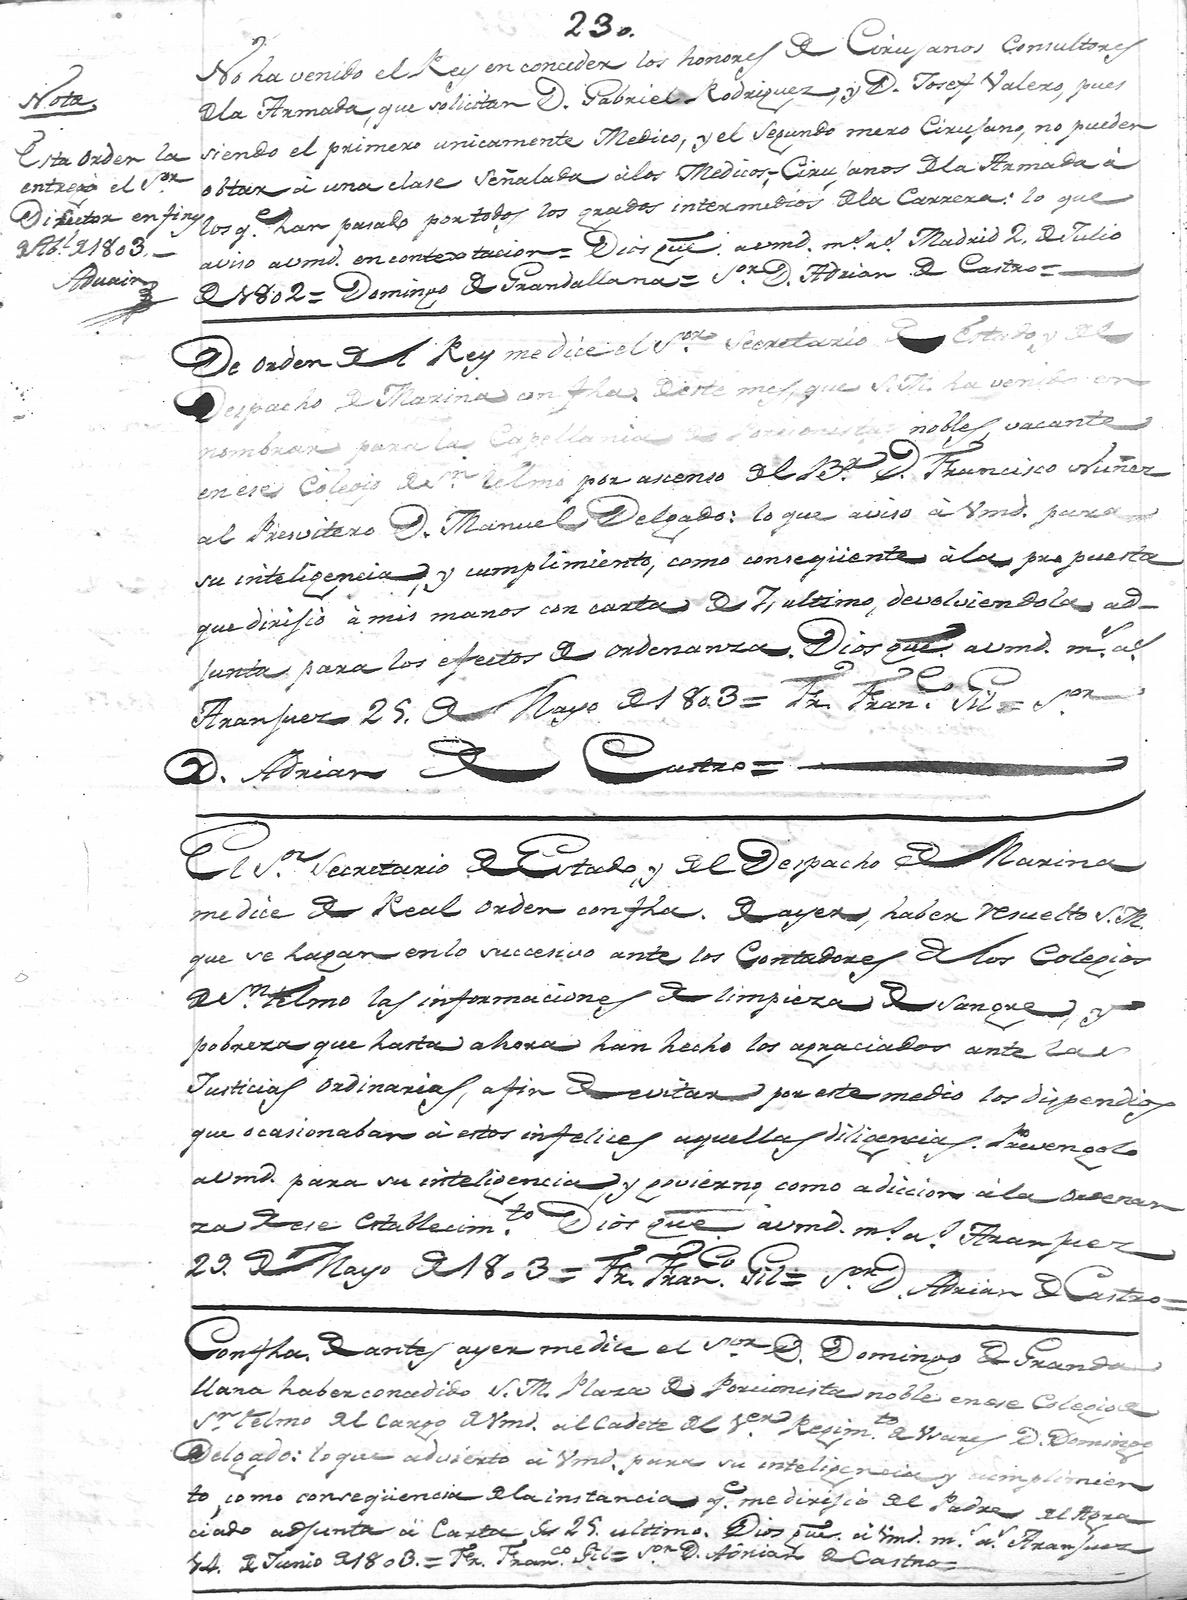 23.
Nota.
Esta orden la
entregó el Sor
Director en fin
de Abl. de 1803.
No ha venido el Rey en conceder los honores de Cirujanos Consultores
de la Armada, que solicitan D. Gabriel Rodriguez, y D. Josef Valero, pues
siendo el primero unicamente Medico, y el segundo mero Cirujano, no pueden
obtar à una clase señalada àlos Medicos-Cirujanos de la Armada à
los qe. han pasado por todos los grados intermedios de la Carrera: lo que
aviso avmd. en contextacion= Dios gue. avmd. ms. as. Madrid 2. de Julio
de 1802= Domingo de Grandallana= Sor. D. Adrian de Castro=
De orden del Rey me dice el Sor. Secretario de Estado, y del
Despacho de Marina con fha. de este mes, que S.M. ha venido en
nombrar para la Capellania de Porcionistas nobles, vacante
en ese Colegio de Sn. Telmo por ascenso del Br. D. Francisco Nuñez
al Presvitero D. Manuel Delgado: lo que aviso à Vmd. para
su inteligencia, y cumplimiento, como conseqüente àla propuesta
que dirijió à mis manos con carta de 7, ultimo, devolviendola ad-
junta para los efectos de ordenanza. Dios gue. avmd. ms. as.
Aranjuez 25. de Mayo de 1803= Fr. Franco. Gil= Sor
D. Adrian de Castro=
El Sor. Secretario de Estado, y del Despacho de Marina
me dice de Real orden con fha. de ayer, haber resuelto S.M.
que se hagan en lo succesivo ante los Contadores de los Colegios
de Sn. Telmo las informaciones de limpieza de sangre, y
pobreza que hasta ahora han hecho los agraciados ante las
Justicias ordinarias, afin de evitar por este medio los dispendios
que ocasionaban à estos infelices aquellas diligencias. Prevengolo
avmd. para su inteligencia, y govierno, como adiccion àla ordenan
za de ese establecimto. Dios gue. àvmd. ms. as. Aranjuez
29. de Mayo de 1803= Fr. Franco. Gil= Sor D. Adrian de Castro=
Con fha. de antes ayer me dice el Sor D. Domingo de Granda
llana haber concedido S.M. Plaza de Porcionista noble en ese Colegio de
Sn. Telmo del cargo de Vmd. al Cadete del Regimto. de D. Domingo
Delgado: lo que advierto à Vmd. para su inteligencia y cumplimien
to, como conseqüencia de la instancia qe. me dirijió del Padre del Agra
ciado adjunta à Carta de 25. ultimo. Dios gue. à Vmd. ms. as. Aranjuez
14. de Junio de 1803.= Fr. Franco. Gil= Sor D. Adrian de Castro=